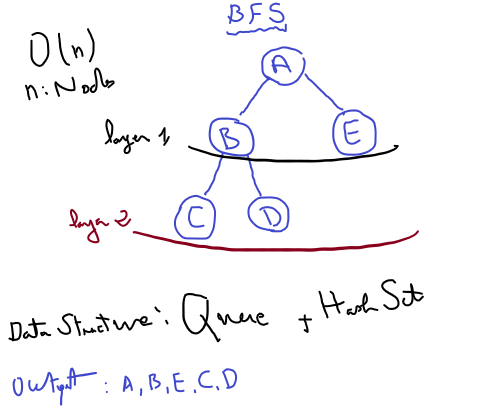 BFS
O(n)
n: Nodes
A
layer 1
B
E
C
D
layer 2
Data Structure: Queue + Hash Set
Output: A, B, E, C, D